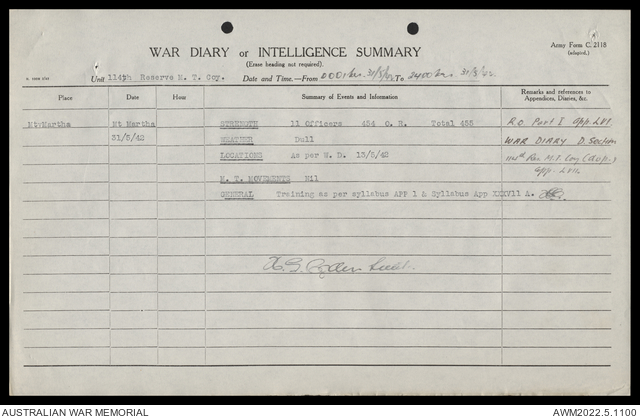 Army Form C. 2118
(adapted.)
WAR DIARY or INTELLIGENCE SUMMARY
(Erase heading not required).
Unit 114th Reserve M. T. Coy. Date and Time.—From 0001 hrs. 31/5/42 To 2400 hrs 31/5/42.
Place Date Summary of Events and Information Remarks and references to
Appendices, Diaries, &c.
MtvMartha Mt Martha STRENGTH 11 Officers 454 O. R. Total 455 R.O. Part I app. LVI.
31/5/42 WEATHER Dull WAR DIARY D. Section
LOCATIONS As per W. D. 13/5/42 114th Res. M.T. Coy (
app. LVII.
M. T. MOVEMENTS Nil
GENERAL Training as per syllabus APP 1 & Syllabus App XXXV11 A.
Lieut.
AUSTRALIAN WAR MEMORIAL AWM2022.5.1100